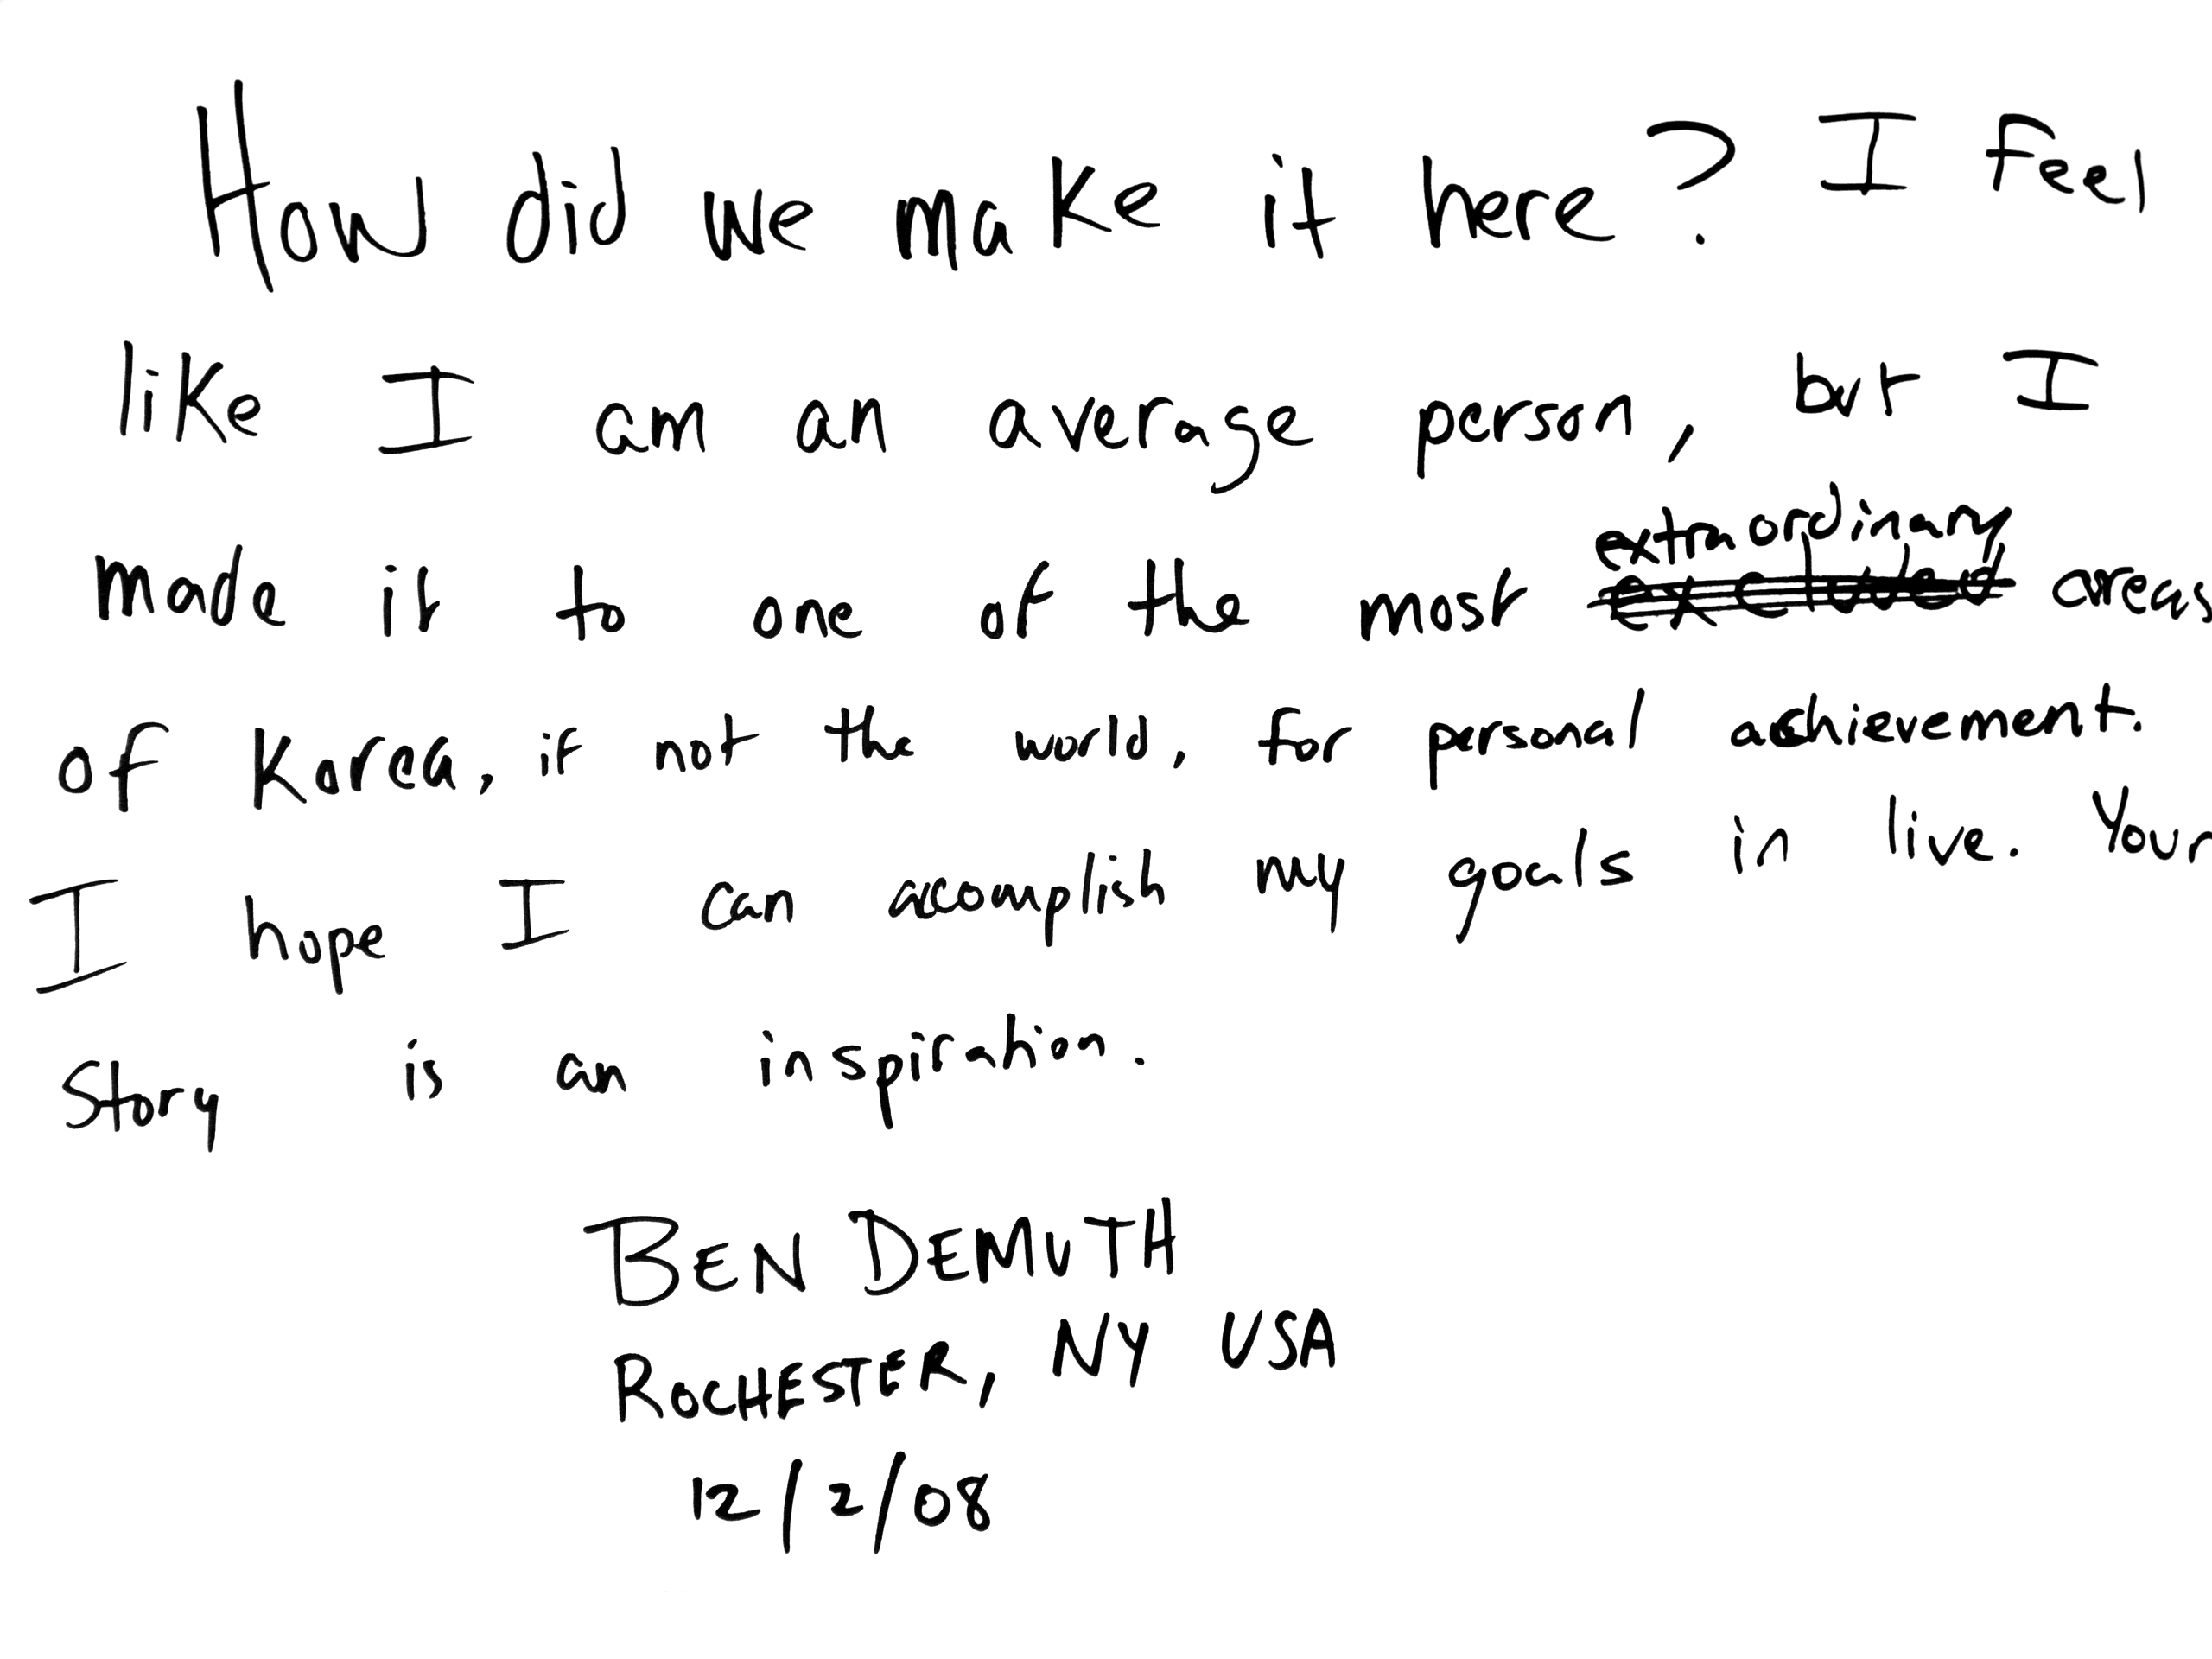 How did we make it here? I feel
like I am an average person, but I
made it to one of the most extraordinary areas
of Korea, if not the world, for personal achievement.
I hope I can accomplish my goals in live. Your
Story is an inspiration.
BEN DEMUTH
ROCHESTER, NY USA
12/2/08